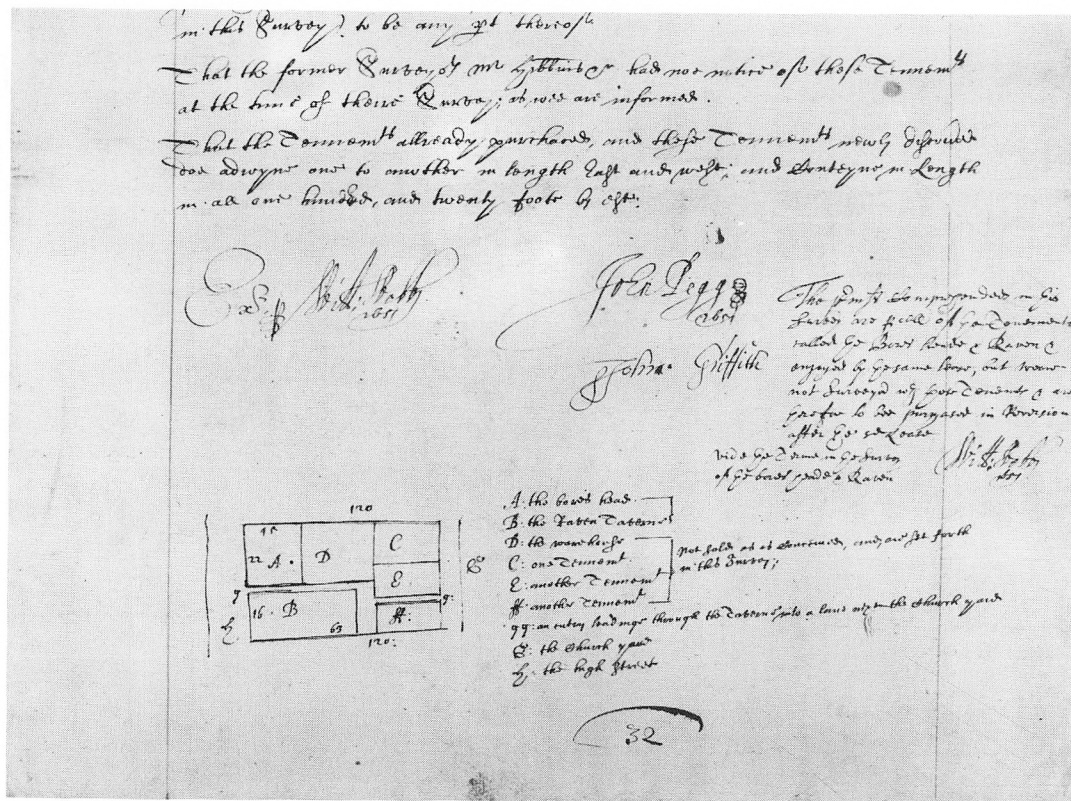 in this Survey) to be any pt thereof.
That the former Surveyor mr Gibbins &c had noe notice of these Tennemts
at the time of theire Survey; as wee are informed.
That the Tennemts allready purchased, and these Tennemts newly
doe adioyne one to another in length East and west; and Conteyne in Length
in all one hundred, and twenty foote by est:
Exd. p Will. Webb
1651
John Pegg
1651
John: Griffith
The pmiss Comprehended in this
Survey are pcell of the Tenements
called the Bores heade & Raven &
enjoyed by the same lease, but weare
not Surveyed wth those Tenemts & are
after the se Lease
vide the Terme in the survey
of the bores heade & Raven
Will. Webb
1651
120
45
22 A. D C
E
g g:
16. B ff:
63
120:
G
H
A: the bores head
B: the Raven Taverne
D: the warehouse
C: one Tennemt
E: another Tennemt
ff: another Tennemt
Not sold as is Conceived, and are set forth
in this Survey;
gg: an entry leadinge through the Taverne into a lane next the Church yard
G: the Church yard
H: the high Street
32